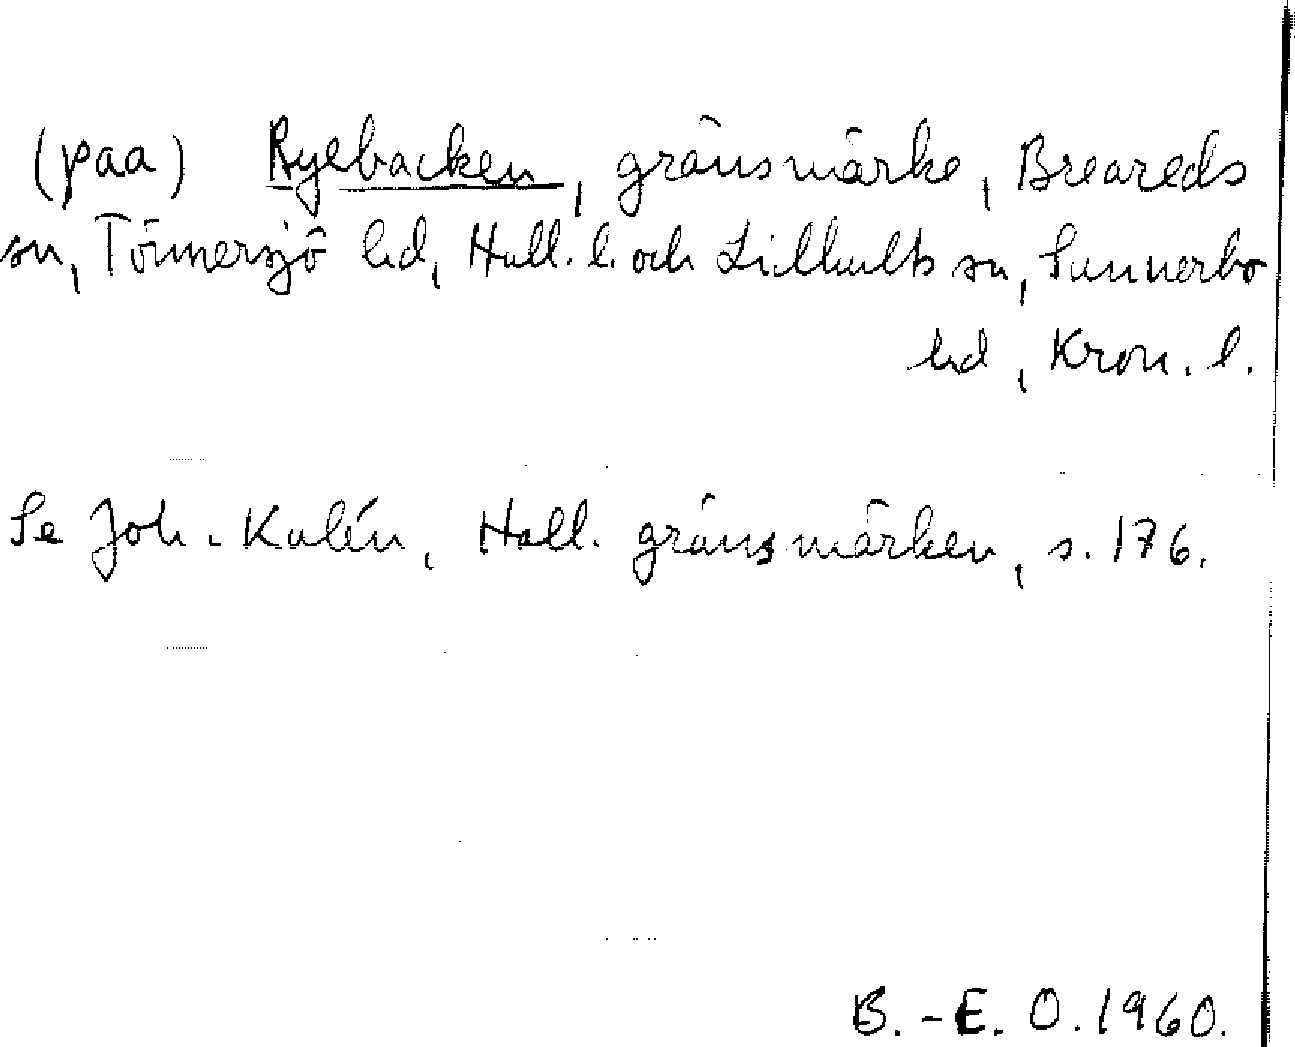 (paa) Ryebacken, gränsmärke, Breareds
sn, Tönnersjö hd, Hall. l. och Lidhults sn, Sunnerbo
hd, Kron. l.
Se Joh. Kalén, Hall. gränsmärken, s. 176.
B.-E. O. 1960.